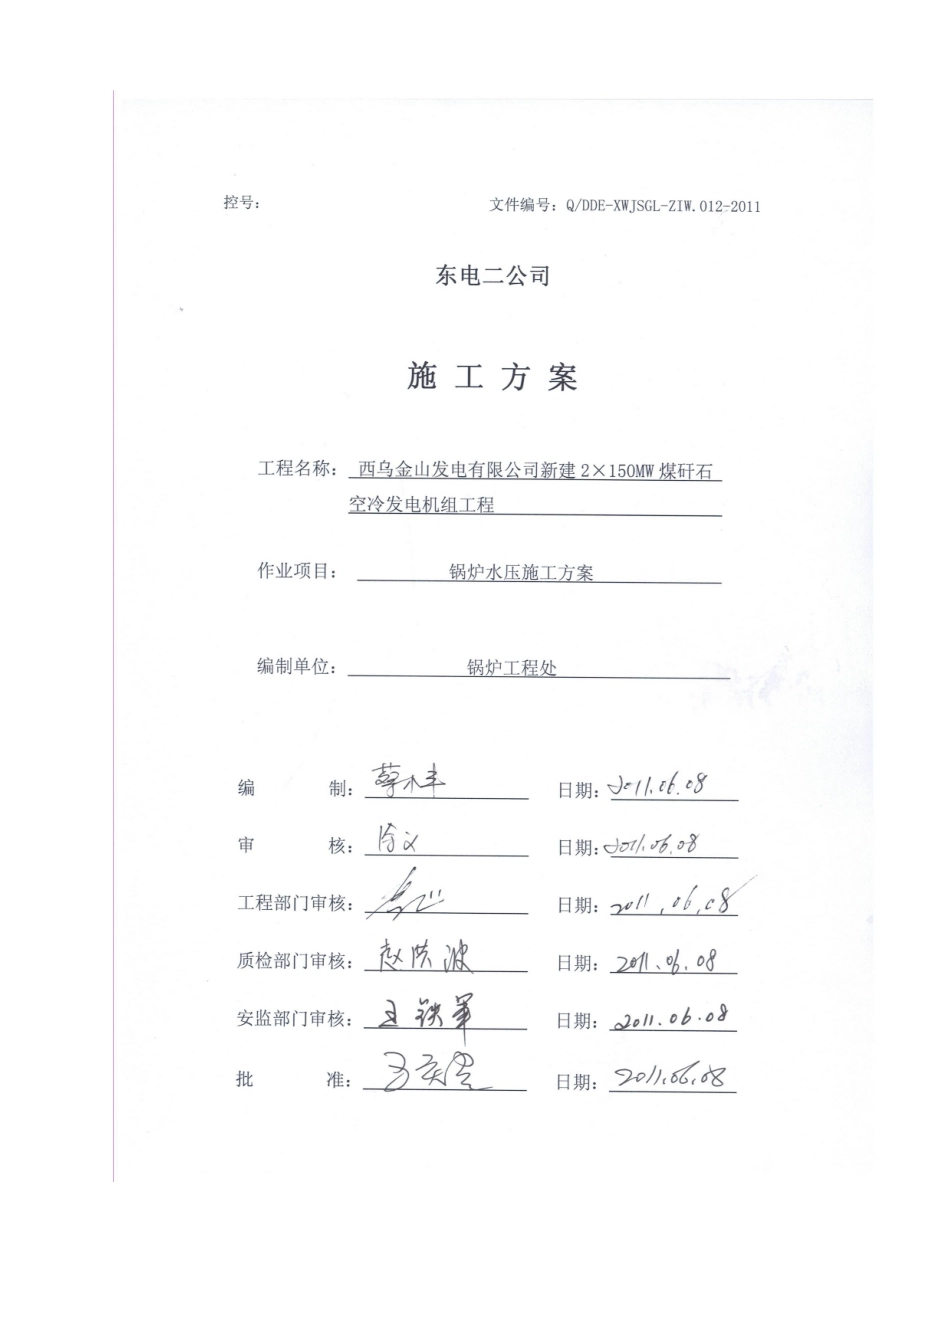 控号： 文件编号：Q/DDE-XWJSGL-ZIW.012-2011
东电二公司
施工方案
工程名称：西乌金山发电有限公司新建2×150MW煤矸石
空冷发电机组工程
作业项目：锅炉水压施工方案
编制单位：锅炉工程处
编制： 日期：2011.06.08
审核： 日期：2011.06.08
工程部门审核： 日期：2011.06.08
质检部门审核：赵洪波 日期：2011.06.08
安监部门审核：王铁军 日期：2011.06.08
批准： 日期：2011.06.08